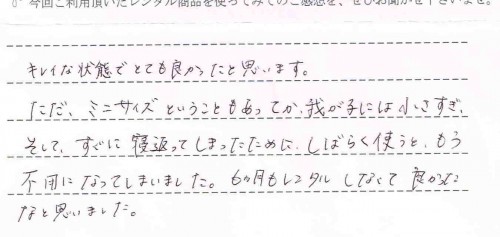 今回ご利用頂いたレンタル商品を使ってみてのご感想を、ぜひお聞かせ下さいませ。
キレイな状態でとても良かったと思います。
ただ、ミニサイズということもあってか、我が子には小さすぎ、
そして、すぐに寝返ってしまったために、しばらく使うと、もう
不用になってしまいました。6ヶ月もレンタルしなくて良かった
なと思いました。